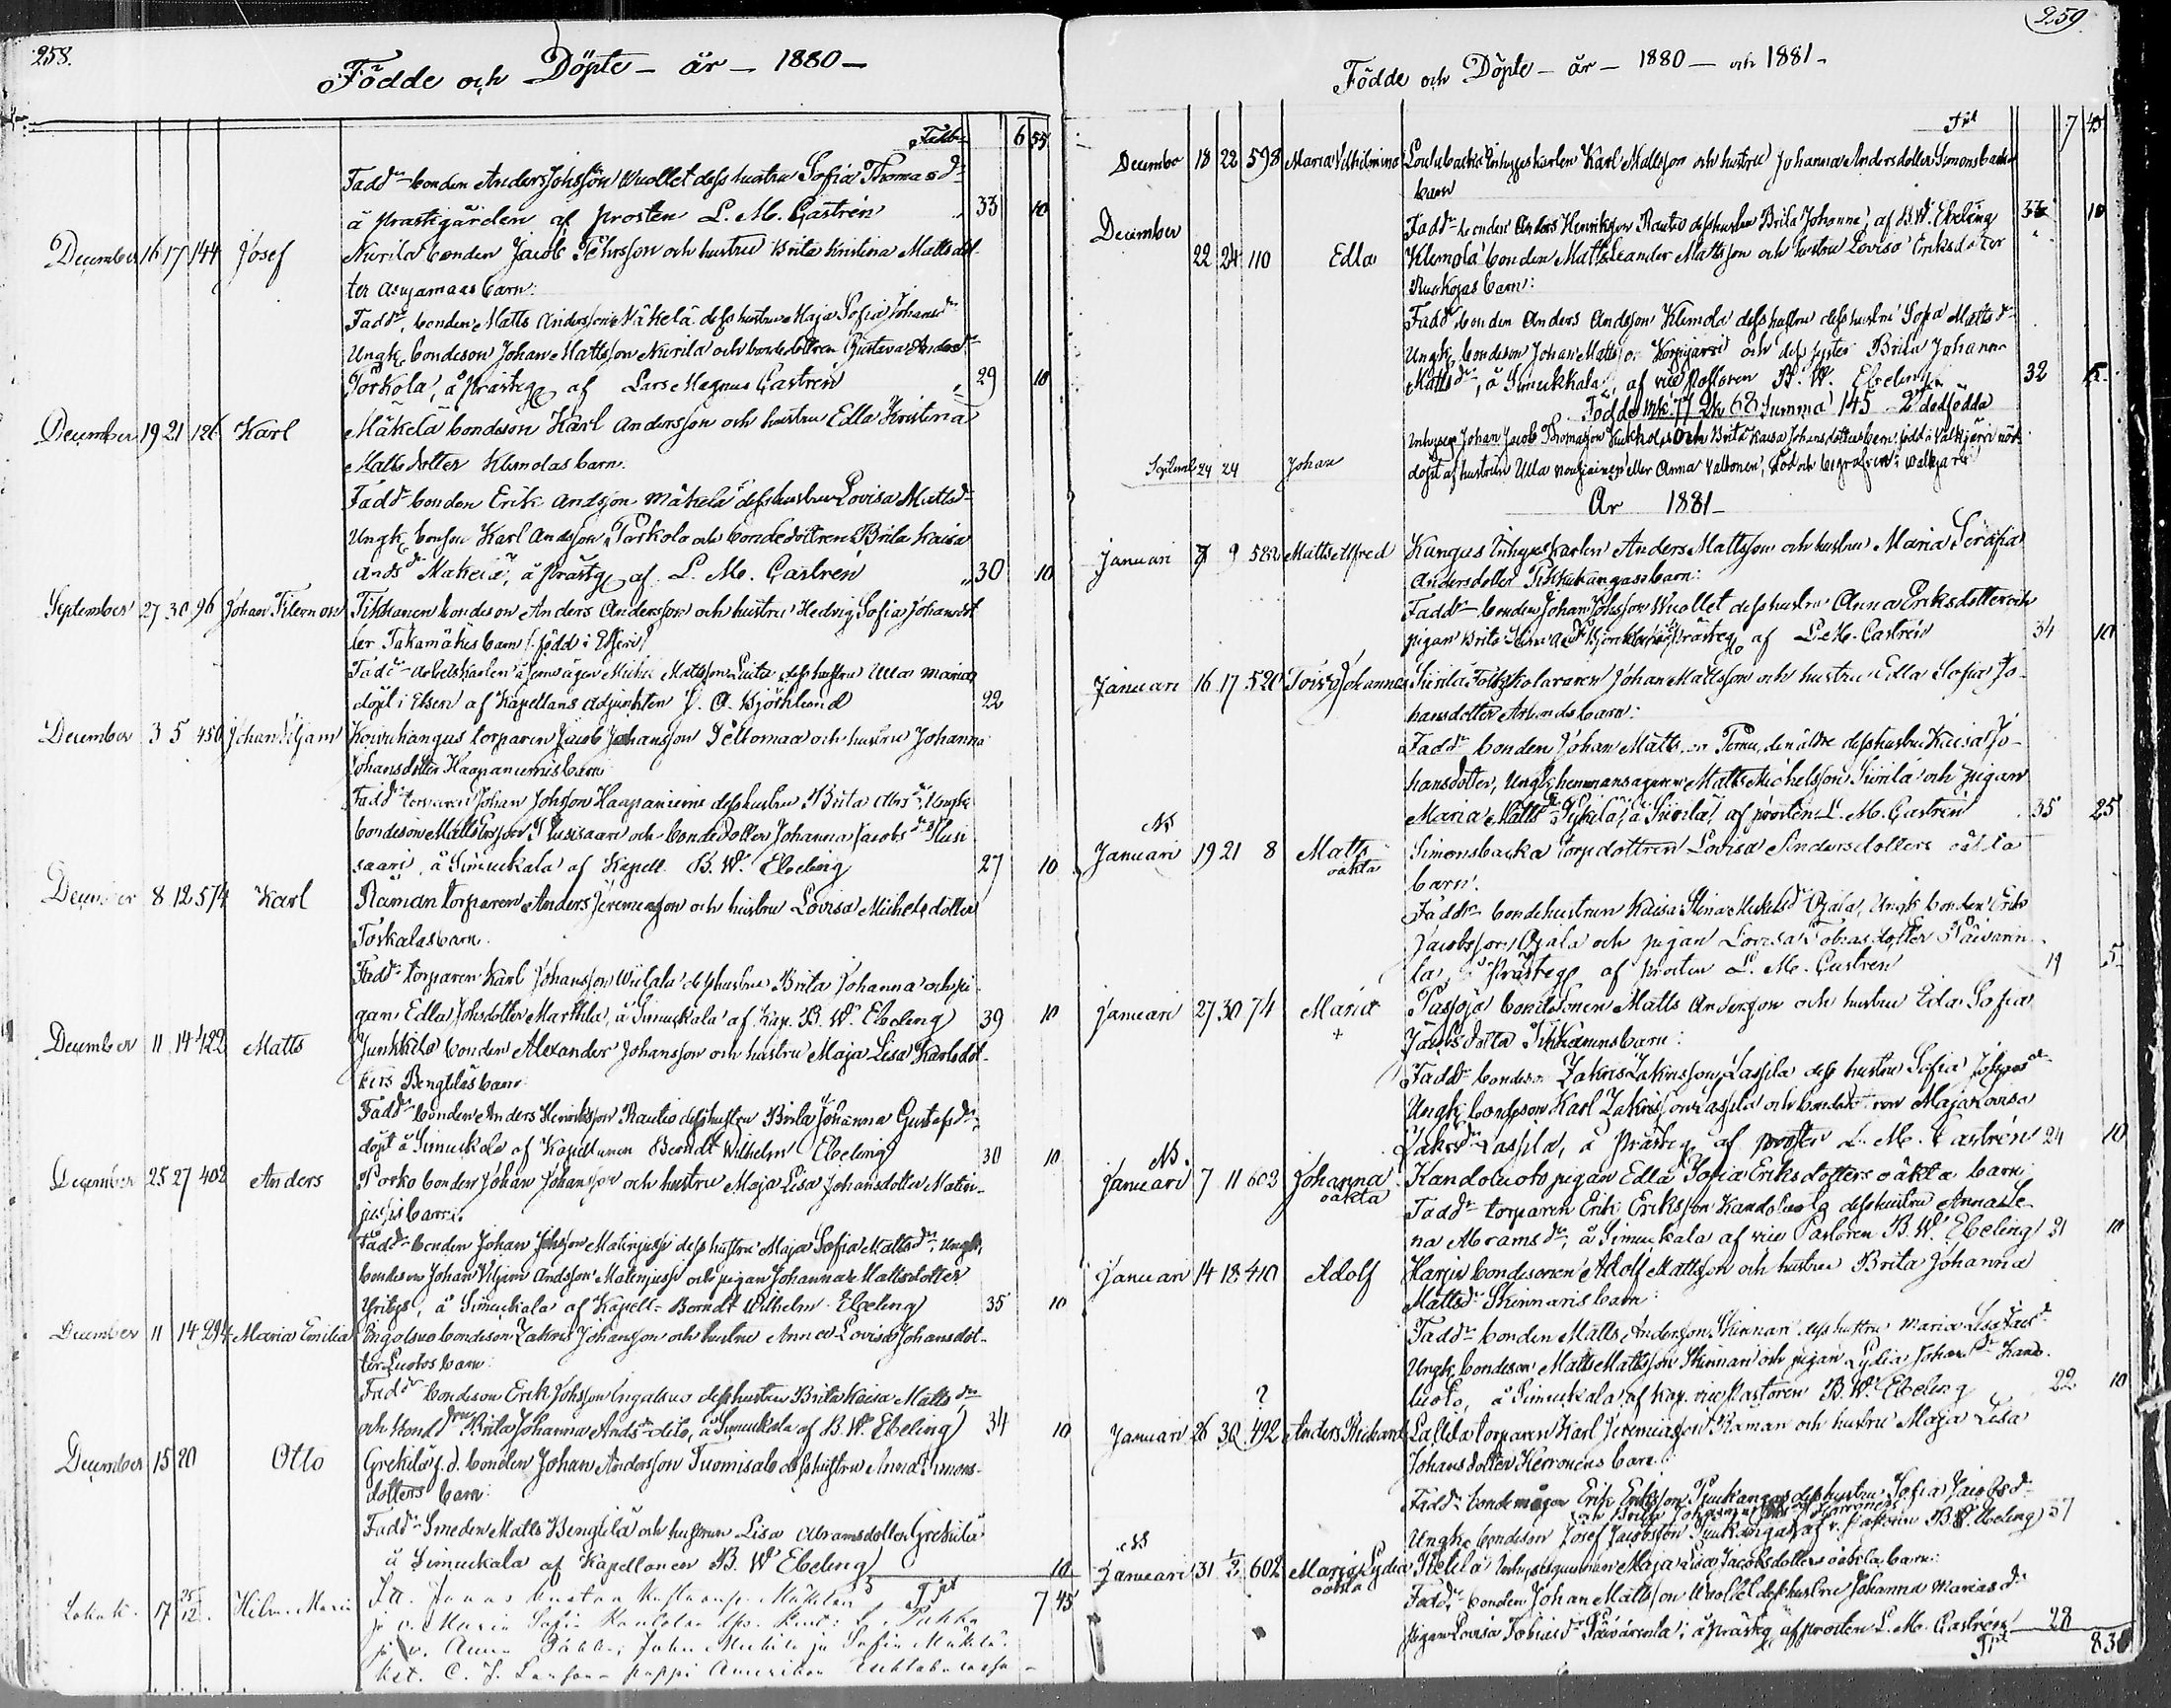 258.
Födde och Döpte - år - 1880 -
6 55
Fadd. bonden Anders Johsson Wuollet dess hustru Sofia Thomasdr
å prästgården af prosten L. M. Castrén 33 10
December 16 17 144 Josef Nurila bonden Jacob Pehrsson och hustru Brita Kristina Mattsdot-
ter barn:
Fadd. bonden Matts Andersson Mäkelä dess hustru Maja Sofia Johansdr
Ungk. bondeson Johan Mattsson Nurila och bondedottren Gustava Andersdr
Torkola, å prästg. af Lars Magnus Castrén 29 10
December 19 21 126 Karl Mäkelä bondeson Karl Andersson och hustru Edla Kristina
Mattsdotter Klemolas barn.
Fadd. bonden Erik Andsson Mäkelä dess hustru Lovisa Mattsdr
Ungk. bonson Karl Andsson Torkola och bondedottren Brita Kaisa
Andsdr Mäkelä, å prästg. af L. M. Castrén 30 10
September 27 30 96 Johan Filemon Tikkanen bondeson Anders Andersson och hustru Hedvig Sofia Johansdot
ter Takamäkis barn (född i
Fadd. arbetskarlen Mattsson dess hustru Ulla Maria
döpt i af Kapellans adjunkten J. A. Björklund 22
December 3 5 450 Johan Viljam Koivukangas torparen Jacob Johansson Peltomaa och hustru Johanna
Johansdotter Haapaniemis barn
Fadd. torparen Johan Johsson Haapaniemi dess hustru Brita Abrsdr, Ungk.
bondeson Matts Ersson Kusisaari och bondedotter Johanna Jacobsdr Kusi
saari, å Simuckala af Kapell. B. W. Ebeling 27 10
December 8 12 574 Karl Räman torparen Anders Jeremiasson och hustru Lovisa Michelsdotter
Toskalas barn.
Fadd. torparen Karl Johansson Wiitala dess hustru Brita Johanna och pi
gan Edla Johsdotter Marttila, å Simuckala af Kap. B. W. Ebeling 39 10
December 11 14 422 Matts Junkkila bonden Alexander Johansson och hustru Maja Lisa Karlsdot-
ters Bengtiläs barn
Fadd. bonden Anders Henriksson Rautio dess hustru Brita Johanna Gustafsdr,
döpt å Simuckala af Kapellanen Berndt Wilhelm Ebeling 30 10
December 25 27 402 Anders Porko bonden Johan Johansson och hustru Maja Lisa Johansdotter Matin-
jussis barn.
Fadd. bonden Johan Johsson Matinjussi dess hustru Maja Sofia Mattsdr, Ungk.
bondeson Johan Viljam Andsson Matinjussi och pigan Johanna Mattsdotter
Yritys, å Simuckala af Kapell. Berndt Wilhelm Ebeling 35 10
December 11 14 294 Maria Emilia Ingalsuo bondeson Zakris Johansson och hustru Anna Lovisa Johansdot-
ter Luotos barn:
Fadd. bondeson Erik Johsson Ingalsuo dess hustru Brita Kaisa Mattsdr
och bonddn Brita Johanna Andsdr dito, å Simuckala af B. W. Ebeling 34 10
December 15 20 Otto Grekilä f. d. bonden Johan Andersson Tuomisalo dess hustru Anna Simons-
dotters barn:
Fadd. Smeden Matts Bengtilä och hustrun Lisa Abramsdotter Grekilä
å Simuckala af Kapellanen B. W. Ebeling 10
7 45
Lokak. 17 25/12 Hilm. Maria
jo v. Maria Sofia
jo v. Anna
kst. C. J. pappi Amerikan

259.
Födde och Döpte - år - 1880 - och 1881 -
7 45
December 18 22 598 Maria Vilhelmina inhyseskarlen Karl Mattsson och hustru Johanna Andersdotter Simonsbackas
barn
December
Fadd. bonden Anders Henriksson Rautio dess hustru Brita Johanna, af B. W. Ebeling 10
22 24 110 Edla Klemola bonden Matts Leander Mattsson och hustru Lovisa Eriksdotter
barn:
Fadd. bonden Anders Andsson Klemola dess hustru dess hustru Sofia Mattsdr
Ungk. bondeson Johan Mattsson Korpijärvi och dess syster Brita Johanna
Mattsdr, å Simuckala, af vice Pastoren B. W. Ebeling 32
Födde mk 77 qk 68 Summa 145 - 2 dödfödda
Septemb 24 24 Johan Inhyses Johan Jacob Thomasson och Brita Kaisa Johansdotters barn född i Valkjärvi nöd-
döpt af hustrun Ulla eller Anna Valkonen, död och begrafven i Walkjärvi
År 1881 -
Januari 7 9 582 Matts Alfred Kangas Inhyseskarlen Anders Mattsson och hustru Maria Serafia
Andersdotter Pikkukangas barn:
Fadd. bonden Johan Johsson Wuollet dess hustru Anna Eriksdotter och
pigan Brita prästg. af L. M. Castrén 34 10
Januari 16 17 520 Toivo Johannes Siirilä Folkskolläraren Johan Mattsson och hustru Edla Sofia Jo-
hansdotter barn:
Fadd. bonden Johan Mattsson den äldre dess hustru Kaisa Jo-
hansdotter, Ungk. hemmansägaren Matts Michelsson Siirilä och pigan
Maria Mattsdr å Siirilä, af prosten L. M. Castrén 35 25
NB
Januari 19 21 8 Matts oäkta Simonsbacka torpdottren Lovisa Andersdotters oäkta
barn.
Fadd. bondehustrun Kaisa Stina Michelsdr Ojala, Ungk. bonden Erik
Jacobsson Ojala och pigan Lovisa Tobiasdotter Päivärin-
la, å Prästg. af prosten L. M. Castrén 19 5
Januari 27 30 74 Maria + Pasoja bondesonen Matts Andersson och hustru Eda Sofia
Jacobsdotter Tikkanens barn:
Fadd. bondeson Zakris Zakrisson Lassila dess hustru Sofia Johansdr
Ungk. bondeson Karl Zakrisson Lassila och bondedottren Maja Lovisa
Zakrisdr Lassila, å prästg. af prosten L. M. Castrén 24 10
NB.
Januari 7 11 603 Johanna oäkta Kandoluoto pigan Edla Sofia Eriksdotters oäkta barn:
Fadd. torparen Erik Eriksson Kandoluoto dess hustru Anna Le-
na Abramsdr, å Simuckala af vice Pastoren B. W. Ebeling 31 10
Januari 14 18 410 Adolf Harju bondesonen Adolf Mattsson och hustru Brita Johanna
Mattsdr Skinnaris barn:
Fadd. bonden Matts Andersson Skinnari dess hustru Maria Lisa
Ungk. bondeson Matts Mattsson Skinnari och pigan Lydia Johansdr Kando-
luoto, å Simuckala af Kap. vice Pastoren B. W. Ebeling 22 10
?
Januari 26 30 492 Anders Rickard torparen Karl Jeremiasson Räman och hustru Maja Lisa
Johansdotter Herronens barn:
Fadd. bondemågen Erik Eriksson Puukangas dess hustru Sofia Jacobsdr
Ungk. bondeson Josef Jacobsson Puukangas af v. Pastorn B. W. Ebeling 37
NB
Januari 31 1/2 602 Maria Lydia oäkta Inhysesqvinnan Maja Lisa Jacobsdotters oäkta barn:
Fadd. bonden Johan Mattsson Wuollet dess hustru Johanna Mariasdr
pigan Lovisa Tobiasdr Päivärinta, å prästg. af prosten L. M. Castrén 28
8 30